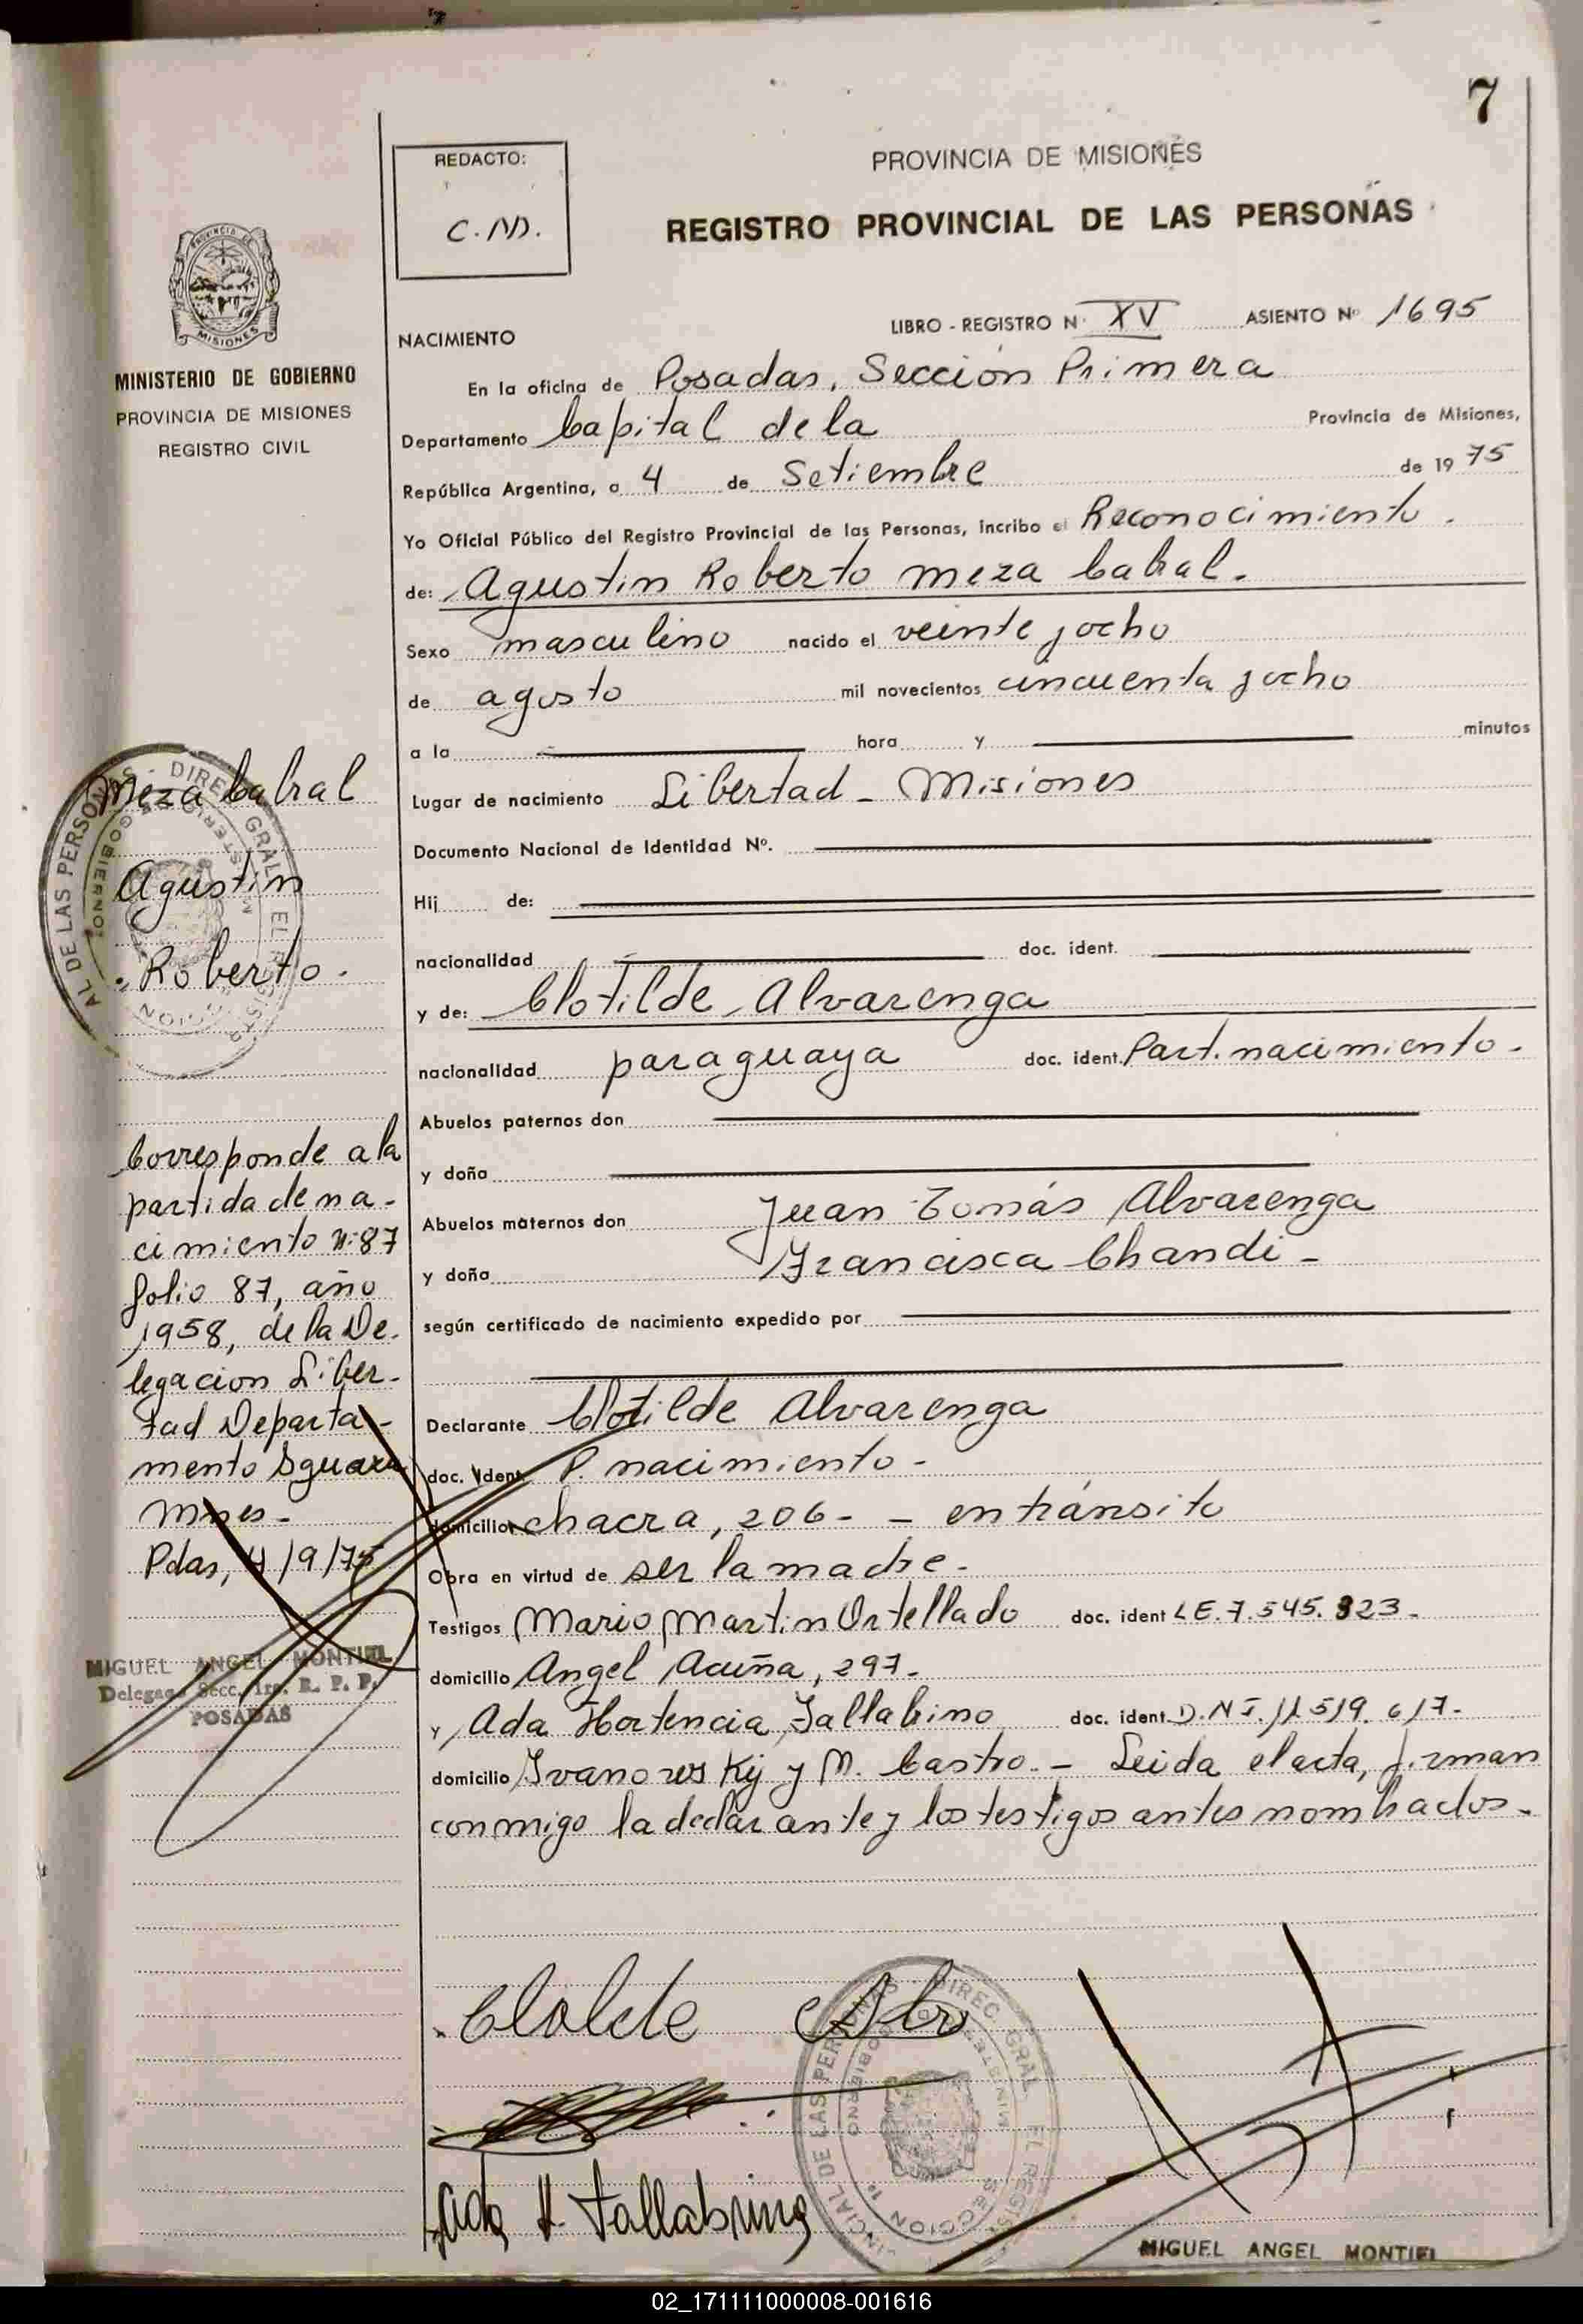 7
REDACTO:
C.M.
PROVINCIA DE MISIONES
REGISTRO PROVINCIAL DE LAS PERSONAS
MISIONES
MINISTERIO DE GOBIERNO
PROVINCIA DE MISIONES
REGISTRO CIVIL
NACIMIENTO
LIBRO - REGISTRO N· XV ASIENTO Nº 1695
En la oficina de Posadas, Sección Primera
Departamento Capital de la Provincia de Misiones,
República Argentina, a 4 de Setiembre de 1975
Yo Oficial Público del Registro Provincial de las Personas, incribo el Reconocimiento.
de: Agustin Roberto Meza Cabral.
Sexo masculino nacido el veinte y ocho
de agosto mil novecientos cincuenta y ocho
a la hora y minutos
Lugar de nacimiento Libertad - Misiones
Documento Nacional de Identidad Nº.
Hij de:
nacionalidad doc. ident.
y de: Clotilde Alvarenga
nacionalidad paraguaya doc. ident. Part. nacimiento.
Abuelos paternos don
y doña
Abuelos maternos don Juan Tomás Alvarenga
y doña Francisca Chandi -
según certificado de nacimiento expedido por
Declarante Clotilde Alvarenga
doc. ident. P. nacimiento -
domicilio chacra, 206 - - en tránsito
Obra en virtud de ser la madre -
Testigos Mario Martin Ortellado doc. ident L.E. 7.545.823.
domicilio Angel Acuña, 297.
y Ada Hortencia Fallabrino doc. ident. D.N.I. 11.519.617.
domicilio Ivanowskij y M. Castro. - Leida el acta, firman
conmigo la declarante y los testigos antes nombrados.
Meza Cabral
Agustin
Roberto.
Corresponde a la
partida de na-
cimiento nº 87
folio 87, año
1958, de la De-
legacion Liber-
tad Departa-
mento Iguazu
Mnes -
Pdas, 4/9/75
MIGUEL ANGEL MONTIEL
Delegado Secc. 1ra. R. P. P.
POSADAS
Ada H. Fallabrino
MIGUEL ANGEL MONTIEL
02_171111000008-001616